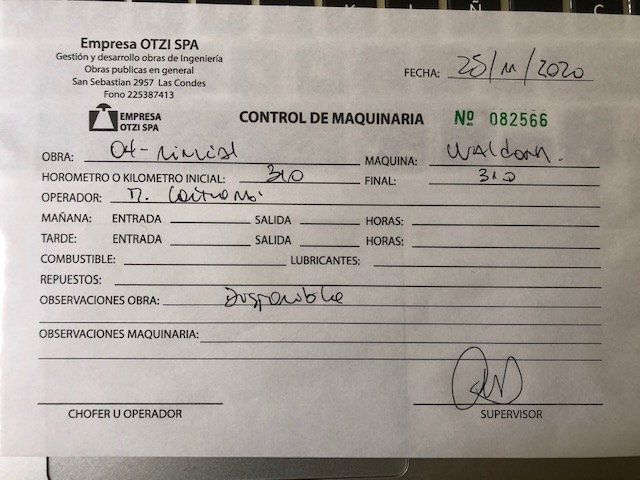 Empresa OTZI SPA
Gestión y desarrollo obras de Ingeniería
Obras publicas en general
San Sebastian 2957 Las Condes
Fono 225387413
FECHA: 25/11/2020
EMPRESA OTZI SPA
CONTROL DE MAQUINARIA Nº 082566
OBRA: MAQUINA: Waldon.
HOROMETRO O KILOMETRO INICIAL: 310 FINAL: 310
OPERADOR:
MAÑANA: ENTRADA SALIDA HORAS:
TARDE: ENTRADA SALIDA HORAS:
COMBUSTIBLE: LUBRICANTES:
REPUESTOS:
OBSERVACIONES OBRA: Disponible
OBSERVACIONES MAQUINARIA:
CHOFER U OPERADOR SUPERVISOR